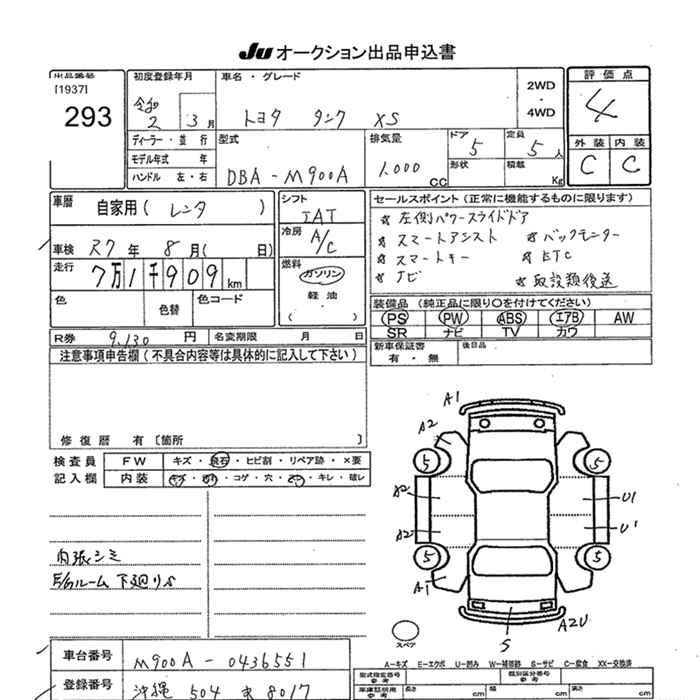 Ju オークション出品申込書
出品番号
[1937]
293
初度登録年月
令和 2 3月
車名・グレード
トヨタ タンク XS
2WD
・
4WD
評価点
4
外装 内装
C C
ディーラー・並行
モデル年式 年
ハンドル 左・右
型式
DBA-M900A
排気量
1,000 CC
ドア
5
形状
定員
5人
積載
Kg
車歴
自家用( レンタ )
車検 R7年 8月( 日)
走行
7万1千909km
色
色替
色コード
シフト
IAT
冷房
A/C
燃料
ガソリン
軽油
( )
セールスポイント (正常に機能するものに限ります)
☆ 左側パワースライドドア
☆ スマートアシスト ☆ バックモニター
☆ スマートキー ☆ ETC
☆ ナビ ☆ 取説類後送
装備品 (純正品に限り○を付けてください)
PS PW ABS エアB AW
SR ナビ TV カワ
新車保証書
有・無
後日品
R券 9,130円
名変期限 月 日
注意事項申告欄(不具合内容等は具体的に記入して下さい)
修復歴 有〔箇所 〕
検査員
記入欄
FW キズ・飛石・ヒビ割・リペア跡・×要
内装 キズ・汚れ・コゲ・穴・・キレ・破レ
内張シミ
ルーム 下廻りS
A1
A2
5 5
A2 U1
A2 U1
5 5
A1
A2U
S
スペア
A-キズ E-エクボ U-凹み W-補修跡 S-サビ C-腐食 XX-交換済
車台番号 M900A-0436551
登録番号 沖縄 504 8017
型式指定番号
参考
類別区分番号
参考
車庫証明用
参考
長さ cm
幅 cm
高さ cm